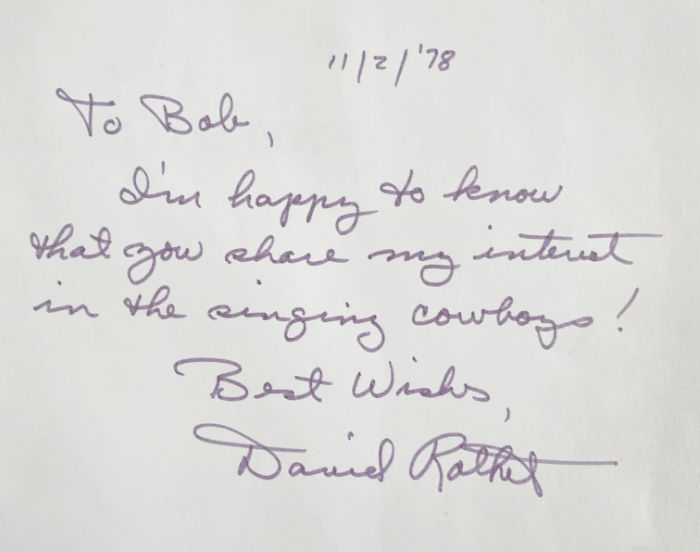 11/2/'78
To Bob,
I'm happy to know
that you share my interest
in the singing cowboys!
Best Wishes,
David Rothel